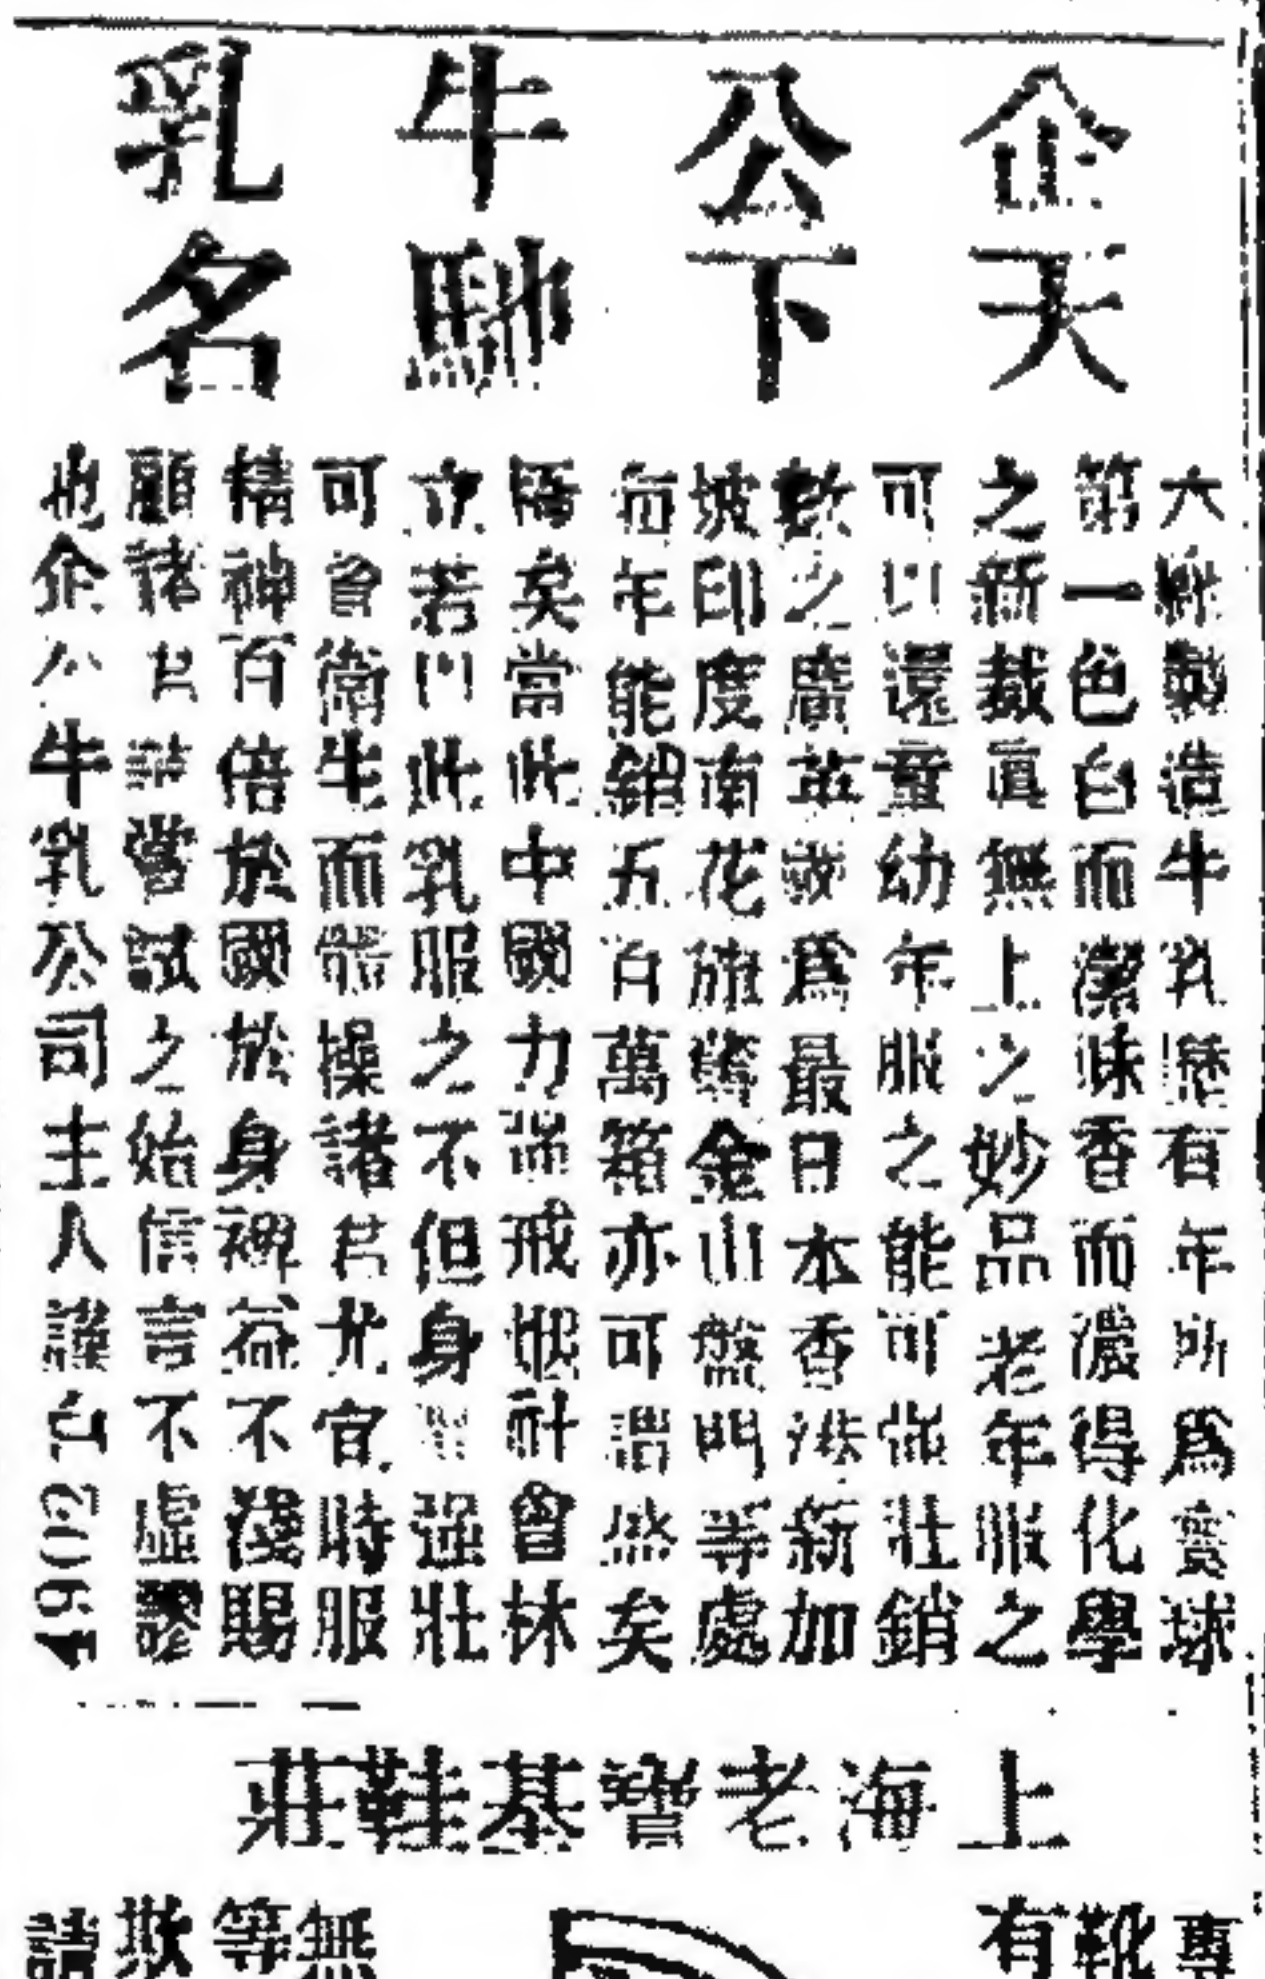 企公牛乳
天下馳名
六㕓製造牛乳歷有年所為寰球
第一色白而潔味香而濃得化學
之新裁眞無上之妙品老年服之
可以還童幼年服之能可強壯銷
數之廣英歐為最日本香港新加
坡印度南花旗舊金山盤門等處
每年能銷五百萬箱亦可謂盛矣
極矣當此中國力強戒烟社會林
立若以此乳服之不但身體强壯
可習衛生而體操諸君尤宜時服
精神百倍於國於身裨益不淺賜
顧諸君請嘗試之始信言不虛謬
也企公牛乳公司主人謹白
19012
上海老寶基鞋莊
專
靴
有
無
等
欺
請